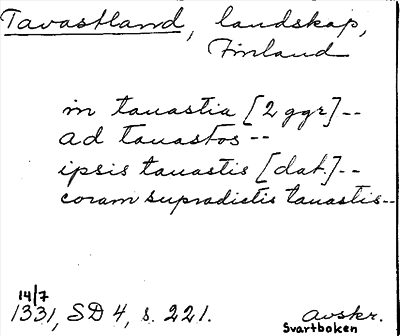 Tavastland, landskap,
Finland
in tauastia [2 ggr] --
ad tauastos --
ipsis tauastis [dat.] --
coram supradictis tauastis --
14/7
1331, SD 4, s. 221.
avskr.
Svartboken